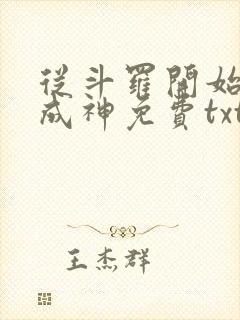 從斗羅開始
成神免費txt
王杰群